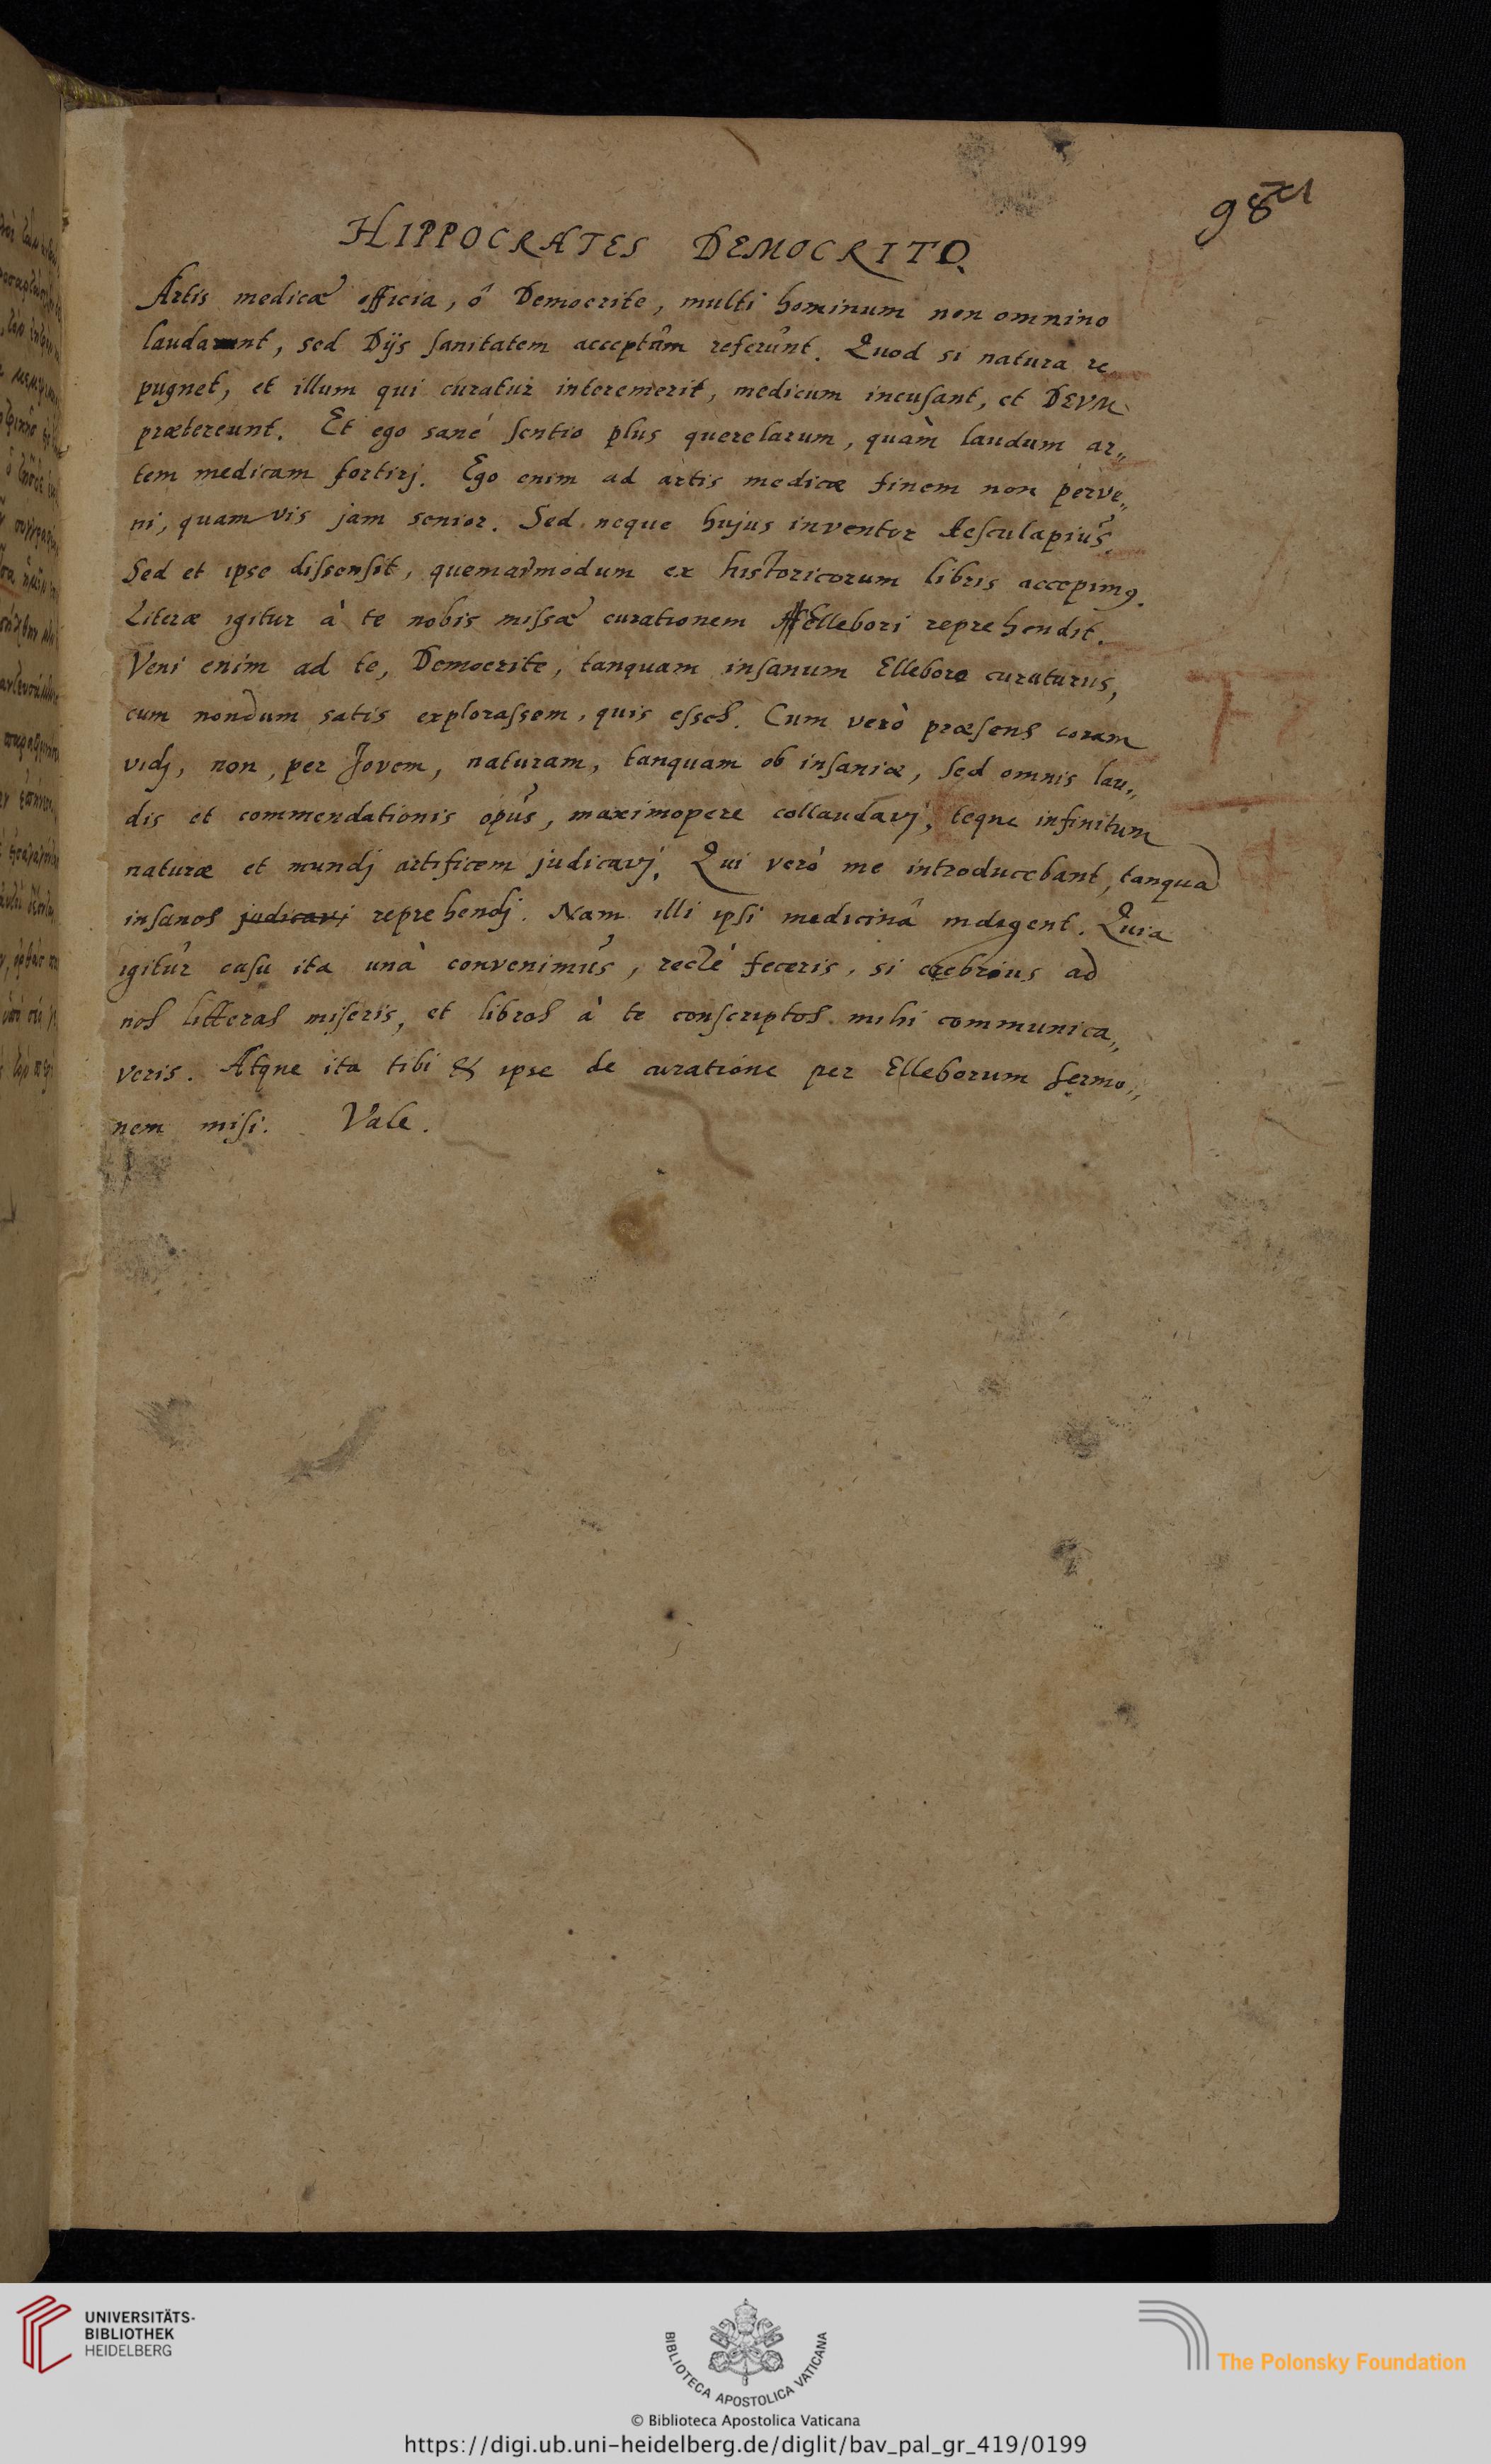 98
HIPPOCRATES DEMOCRITO.
Artis medicæ officia, ô Democrite, multi hominum non omnino
laudarunt, sed Dijs sanitatem acceptâm referunt. Quod si natura re
pugnet, et illum qui curatur interemerit, medicum incusant, et DEVM
prætereunt. Et ego sané sentio plus querelarum, quàm laudum ar„
tem medicam sortirj. Ego enim ad artis medicæ finem non perve„
ni, quamvis jam senior. Sed neque hujus inventor Aesculapius.
Sed et ipse dissensit, quemadmodum ex historicorum libris accepimꝰ.
Literæ igitur à te nobis missæ curationem Ellebori reprehendit.
Veni enim ad te, Democrite, tanquam insanum Elleboro curaturus,
cum nondum satis explorassem, quis esses. Cum verò præsens coram
vidj, non, per Jovem, naturam, tanquam ob insaniæ, sed omnis lau„
dis et commendationis opus, maximopere collaudavj, teque infinitum
naturæ et mundj artificem judicavj. Qui veró me introducebant, tanqua
insanos judicavi reprehendj. Nam illi ipsi medicinâ indigent. Quia
igitur casu ita unà convenimus, recté feceris, si crebrius ad
nos litteras miseris, et libros à te conscriptos mihi communica„
veris. Atque ita tibi & ipse de curatione per Elleborum sermo„
nem misi. Vale.
UNIVERSITÄTS-
BIBLIOTHEK
HEIDELBERG
BIBLIOTECA APOSTOLICA VATICANA
The Polonsky Foundation
© Biblioteca Apostolica Vaticana
https://digi.ub.uni-heidelberg.de/diglit/bav_pal_gr_419/0199